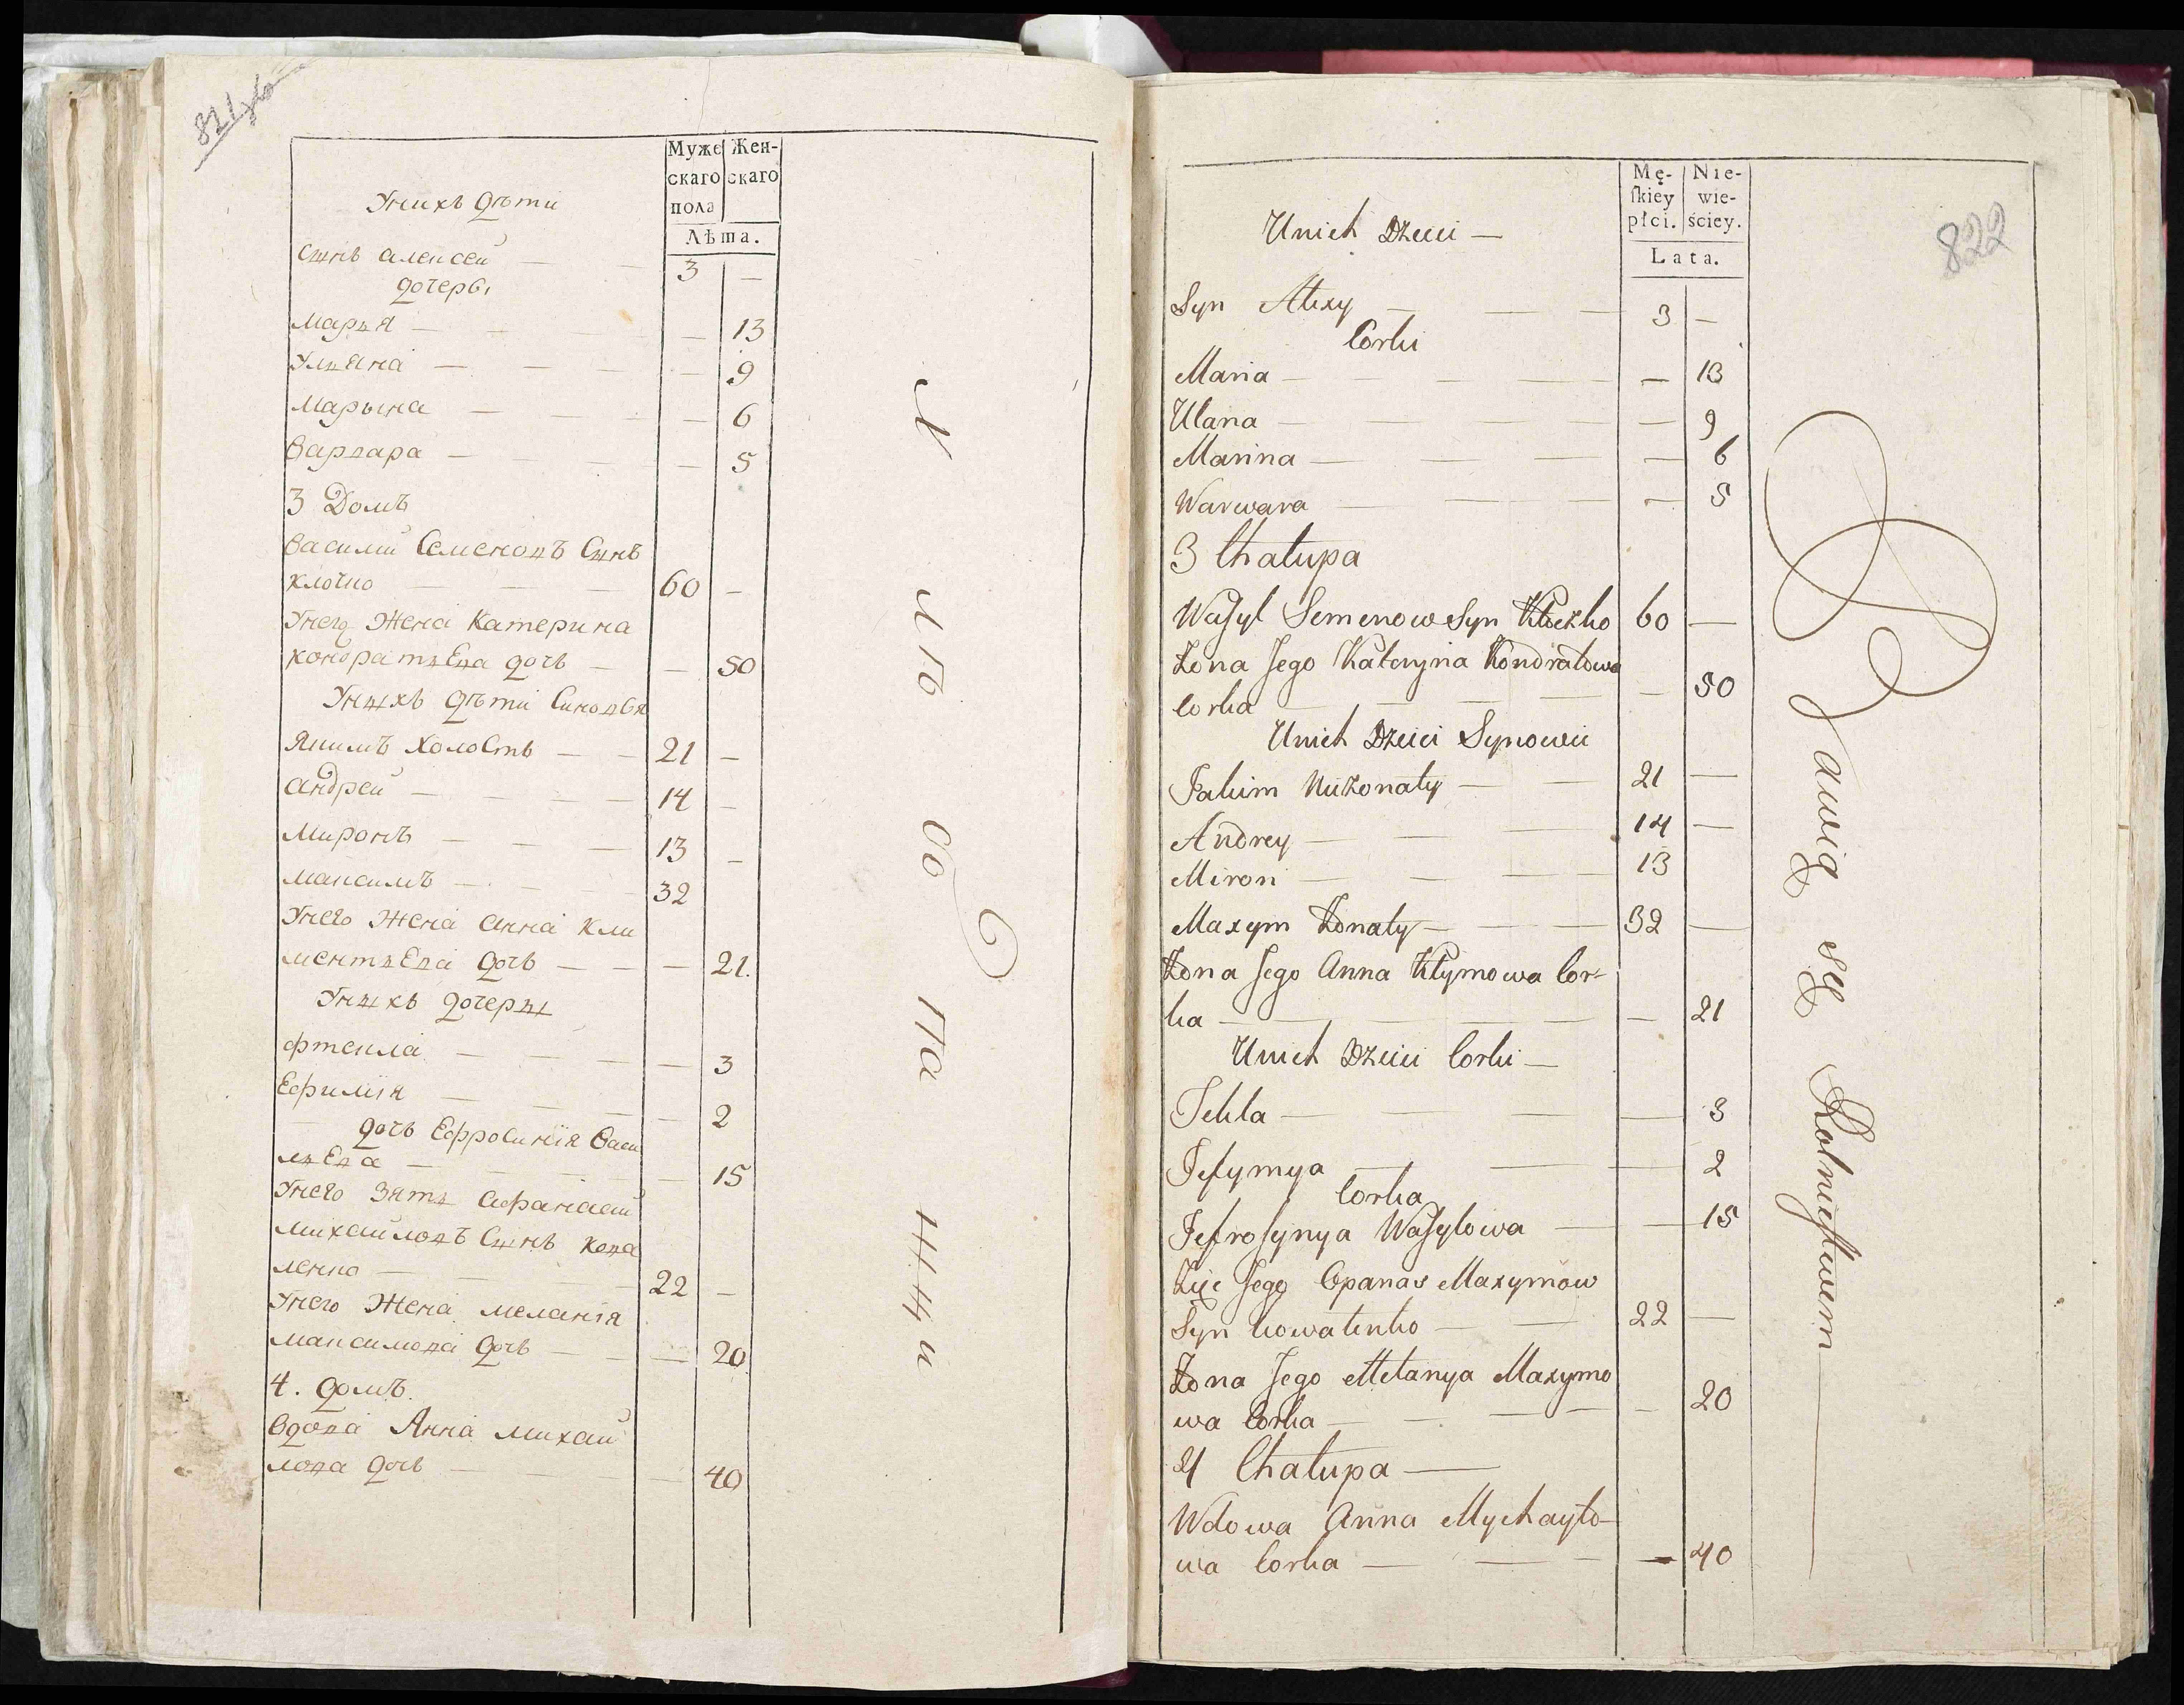 821
Муже
скаго
пола
Жен-
скаго
Лѣта.
Унихъ дѣти
Сынъ алексей — — 3 —
дочеры
Марья — — — 13
Ульяна — — — — 9
Марына — — — — 6
Варвара — — — — 5
3 Домъ
Василий Семеновъ Сынъ
Клочко — — — 60 —
Унего Жена Катерина
кондратьева дочь — — 50
Уныхъ дѣти Синовья
Якимъ холостъ — — 21 —
андрей — — — — 14 —
Миронъ — — — 13 —
максимъ — — — 32
Унего Жена анна Кли
ментьева дочь — — — 21.
Уныхъ дочеры
Фтекла — — — — 3
Ефимія — — — — 2
дочь Ефросинія Васи
льева — — — — 15
Унего Зять афанасий
михайловъ Сынъ Кова
ленко — — — 22 —
Унего Жена меланія
максимова дочь — — — 20
4. домъ.
вдова Анна михай
лова дочь — — — 40
Хлѣбопашцы
822
Mę-
skiey
płci.
Nie-
wie-
ściey.
Lata.
Unich Dzieci —
Syn Alexy — — — 3 —
Corki
Maria — — — — — 13
Ulana — — — — — 9
Marina — — — — 6
Warwara — — — — 5
3 Chałupa
Wasyl Semenow Syn Kłoczko 60 —
Żona Jego Kateryna Kondratowa
Corka — — — — — 50
Unich Dzieci Synowie
Jakim Nieżonaty — — 21 —
Andrey — — — 14 —
Miron — — — 13
Maxym Żonaty — — — 32 —
Żona Jego Anna Kłymowa Cor-
ka — — — — — 21
Unich Dzieci Corki —
Tekla — — — — 3
Jefymya — — — 2
Corka
Jefrosynya Wasylowa — — 15
Zięć Jego Opanas Maxymow
Syn Kowalenko — — 22 —
Żona Jego Melanya Maxymo
wa Corka — — — — — 20
4 Chałupa —
Wdowa Anna Mychayło-
wa Corka — — — — 40
Bawią się Rolnictwem